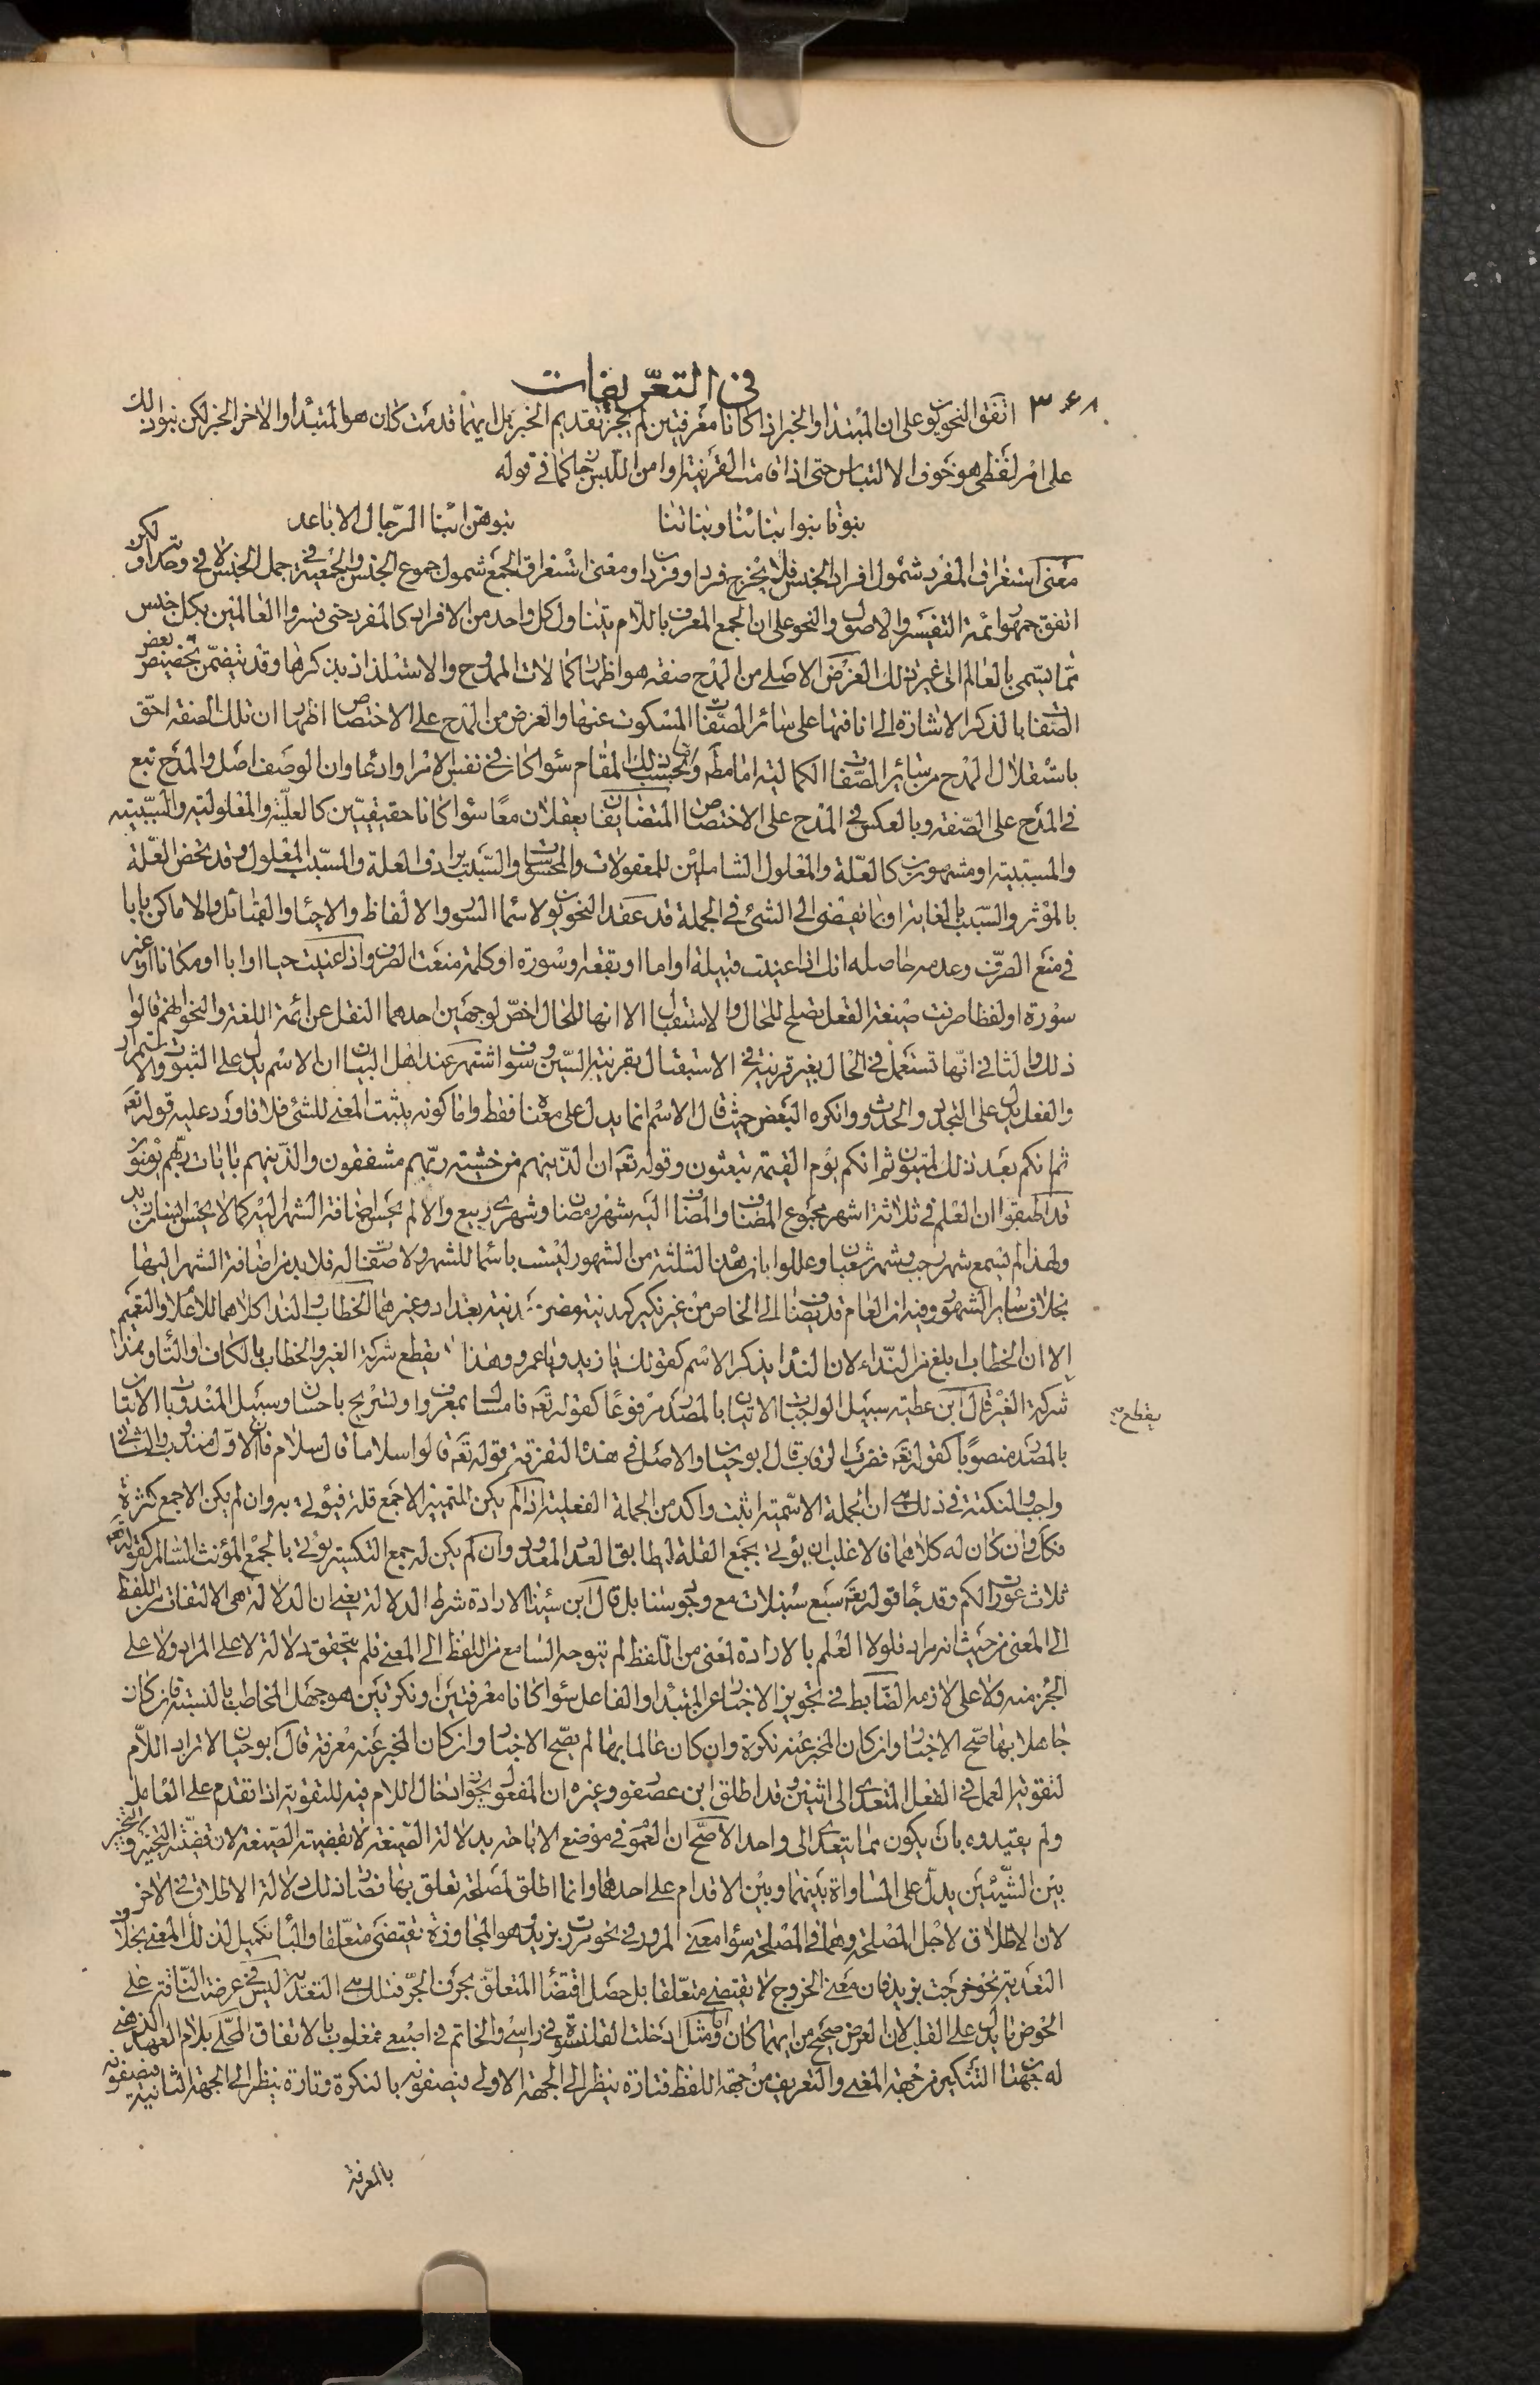 في التعريفات
٣٤٨ اتفق النحويون على ان المبتدا والخبر اذا كانا معرفتين لم يجز تقديم الخبر بل ايهما قدمت كان هو المبتدا والاخر الخبر لكن بنوا ذلك
على امر لفظي هو خوف الالتباس حتى اذا قامت القرينة او امن اللبس جاز كما في قوله
بنونا بنوا بناتنا وبناتنا بنوهن ابنا الرجال الاباعد
معنى استغراق المفرد شمول افراد الجنس فلا يخرج فرد او فردان ومعنى استغراق الجمع شمول جموع الجنس والجمعية في جمل الجنس لا في وحدانه لكن
اتفق جمهور ائمة التفسير والاصول والنحو على ان الجمع المعرف باللام يتناول كل واحد من الافراد كالمفرد حتى فسروا العالمين بكل جنس
مما يسمى بالعالم الى غير ذلك الغرض الاصلي من المدح صفة هو اظهار كمالات الممدوح والاستلذاذ بذكرها وقد يتضمن تخصيص بعض
الصفات بالذكر الاشارة الى انافتها على سائر الصفات المسكوت عنها والغرض من المدح على الاختصاص اظهار ان تلك الصفة احق
باستقلال المدح من سائر الصفات الكمالية اما مطلقا او بحسب ذلك المقام سواء كان في نفس الامر او ادعاء وان الوصف اصل والمدح تبع
في المدح على الصفة وبالعكس في المدح على الاختصاص المتضايفان يعقلان معا سواء كانا حقيقيين كالعلية والمعلولية والسببية
والمسببية او مشهورين كالعلة والمعلول الشاملين للمعقولات والمحسوسات والسبب يرادف العلة والمسبب المعلول وقد يخص العلة
بالمؤثر والسبب بالغاية او بما يفضي الى الشئ في الجملة قد عقد النحويون لاسماء السور والالفاظ والاحياء والقبائل والاماكن بابا
في منع الصرف وعدمه حاصله انك اذا عنيت قبيلة او اما او بقعة او سورة او كلمة منعت الصرف واذا عنيت حيا او ابا او مكانا او غير
سورة او لفظا صرفت صيغة الفعل تصلح للحال والاستقبال الا انها للحال اخص لوجهين احدهما النقل عن ائمة اللغة والنحو انهم قالوا
ذلك والثاني انها تستعمل في الحال بغير قرينة وفي الاستقبال بقرينة السين وسوف اشتهر عند اهل البيان ان الاسم يدل على الثبوت والاستمرار
والفعل يدل على التجدد والحدوث وانكره البعض حيث قال الاسم انما يدل على معناه فقط واما كونه يثبت المعنى للشئ فلا فاورد عليه قوله تعه
ثم انكم بعد ذلك لميتون ثم انكم يوم القيمة تبعثون وقوله تعه ان الذين هم من خشية ربهم مشفقون والذين هم بايات ربهم يؤمنون
قد اطبقوا ان العلم في ثلاثة اشهر مجموع المضاف والمضاف اليه شهر رمضان وشهري ربيع والا لم يحسن اضافة الشهر اليه كما لا يحسن انسان زيد
ولهذا لم يسمع شهر رجب وشهر شعبان وعللوا بان هذه الثلثة من الشهور ليست باسماء للشهر ولا صفات له فلا بد من اضافة الشهر اليها
بخلاف سائر الشهور وفيه ان العام قد يضاف الى الخاص من غير نكير كمدينة مصر ومدينة بغداد وغيرهما الخطاب والنداء كلاهما للاعلام والتفهيم
الا ان الخطاب ابلغ من النداء لان النداء يذكر الاسم كقولك يا زيد ويا عمرو وهذا لا يقطع شركة الغير والخطاب بالكاف والتاء وهذا
شركة الغير قال ابن عطية سبيل الواجبات الاتيان بالمصدر مرفوعا كقوله تعه فامساك بمعروف او تسريح باحسان وسبيل المندوبات الاتيان
يقطع
بالمصدر منصوبا كقوله تعه فضرب الرقاب قال ابو حيان والاصل في هذه التفرقة قوله تعه قالوا سلاما قال سلام فان الاول مندوب والثاني
واجب والنكتة في ذلك هي ان الجملة الاسمية اثبت واكد من الجملة الفعلية اذا لم يكن للتمييز الا جمع قلة فيؤتى به وان لم يكن الا جمع كثرة
فكك وان كان له كلاهما فالاغلب ان يؤتى بجمع القلة ليطابق العدد المعدود وان لم يكن له جمع التكسير يؤتى بالجمع المؤنث السالم كقوله تعه
ثلاث عورات لكم وقد جاء قوله تعه سبع سنبلات مع وجود سنابل قال ابن سينا الارادة شرط الدلالة يعني ان الدلالة هي الالتفات من اللفظ
الى المعنى من حيث انه مراد فلولا العلم بالارادة لمعنى من اللفظ لم يتوجه السامع من اللفظ الى المعنى فلم يتحقق دلالة لا على المراد ولا على
الجزء منه ولا على لازمه الضابط في تجويز الاخبار عن المبتدا والفاعل سواء كانا معرفتين او نكرتين هو جهل المخاطب بالنسبة فان كان
جاهلا بها صح الاخبار وان كان المخبر عنه نكرة وان كان عالما بها لم يصح الاخبار وان كان المخبر عنه معرفة قال ابو حيان لا تزاد اللام
لتقوية العمل في الفعل المتعدي الى اثنين وقد اطلق ابن عصفور وغيره ان المفعول يجوز ادخال اللام فيه للتقوية اذا تقدم على العامل
ولم يقيدوه بان يكون مما يتعدى الى واحد الاصح ان العموم في موضع الاباحة بدلالة الصيغة لا بقضية الصيغة لان قضية التخيير والتخيير
بين الشيئين يدل على المساواة بينهما وبين الاقدام على احدهما وانما اطلق لمصلحة تعلق بها فصار ذلك دلالة الاطلاق في الاخر
لان الاطلاق لاجل المصلحة وهما في المصلحة سواء معنى المرور في نحو مررت بزيد وهو المجاوزة تقتضي متعلقا والباء تكميل لذلك المعنى بخلاف
التعدية نحو خرجت بزيد فان معنى الخروج لا يقتضي متعلقا بل حصل اقتضاء المتعلق بحرف الجر فتلك هي التعدية ليس في عرضت الناقة على
الحوض ما يدل على القلب لان العرض صحيح من ايهما كان واما مثل ادخلت القلنسوة في راسي والخاتم في اصبعي فمقلوب بالاتفاق المحلى بلام العهد الذهني
له جهتان التنكير من جهة المعنى والتعريف من جهة اللفظ فتارة ينظر الى الجهة الاولى فيصفونه بالنكرة وتارة ينظر الى الجهة الثانية فيصفونه
بالمعرفة